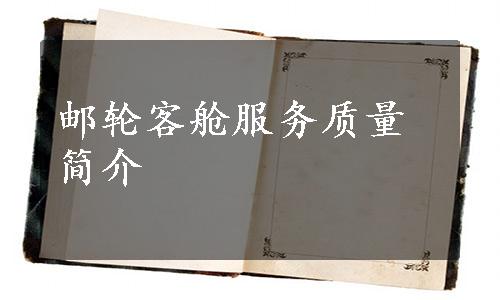 邮轮客舱服务质量
简介